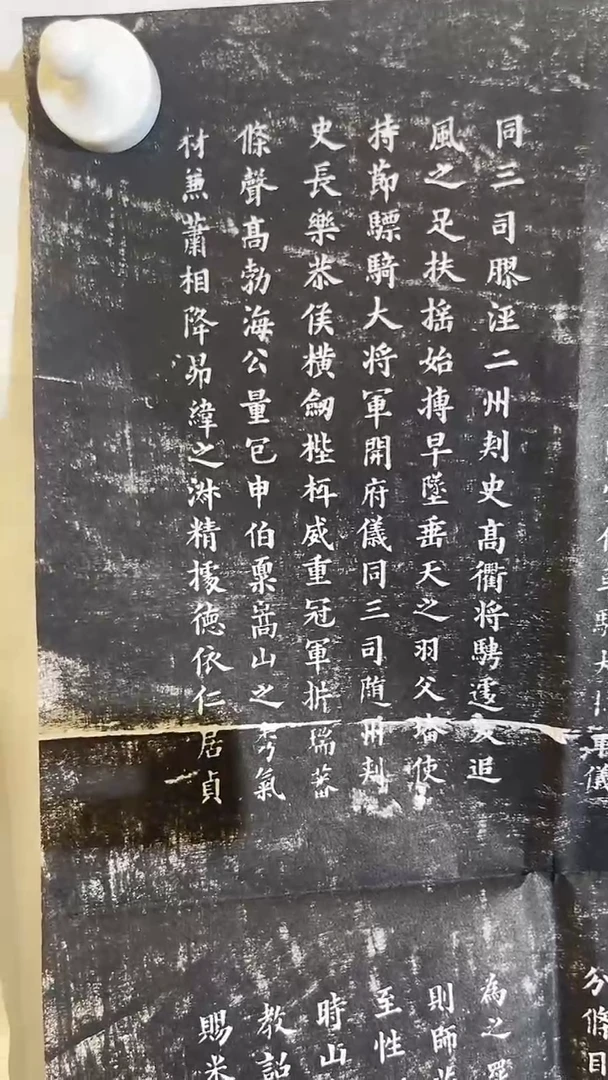 軍儀
同三司膠涇二州刾史高衢將騁遽夭追
風之足扶揺始摶早墜垂天之羽父使
持節驃騎大將軍開府儀同三司隨州刾
史長樂恭侯橫劒梐枑威重冠軍析瑞蕃
條聲高勃海公量包申伯稟嵩山之秀氣
材兼蕭相降昴緯之淑精據德依仁居貞
分條目
為之
則師
至性
時山
教詔
賜米